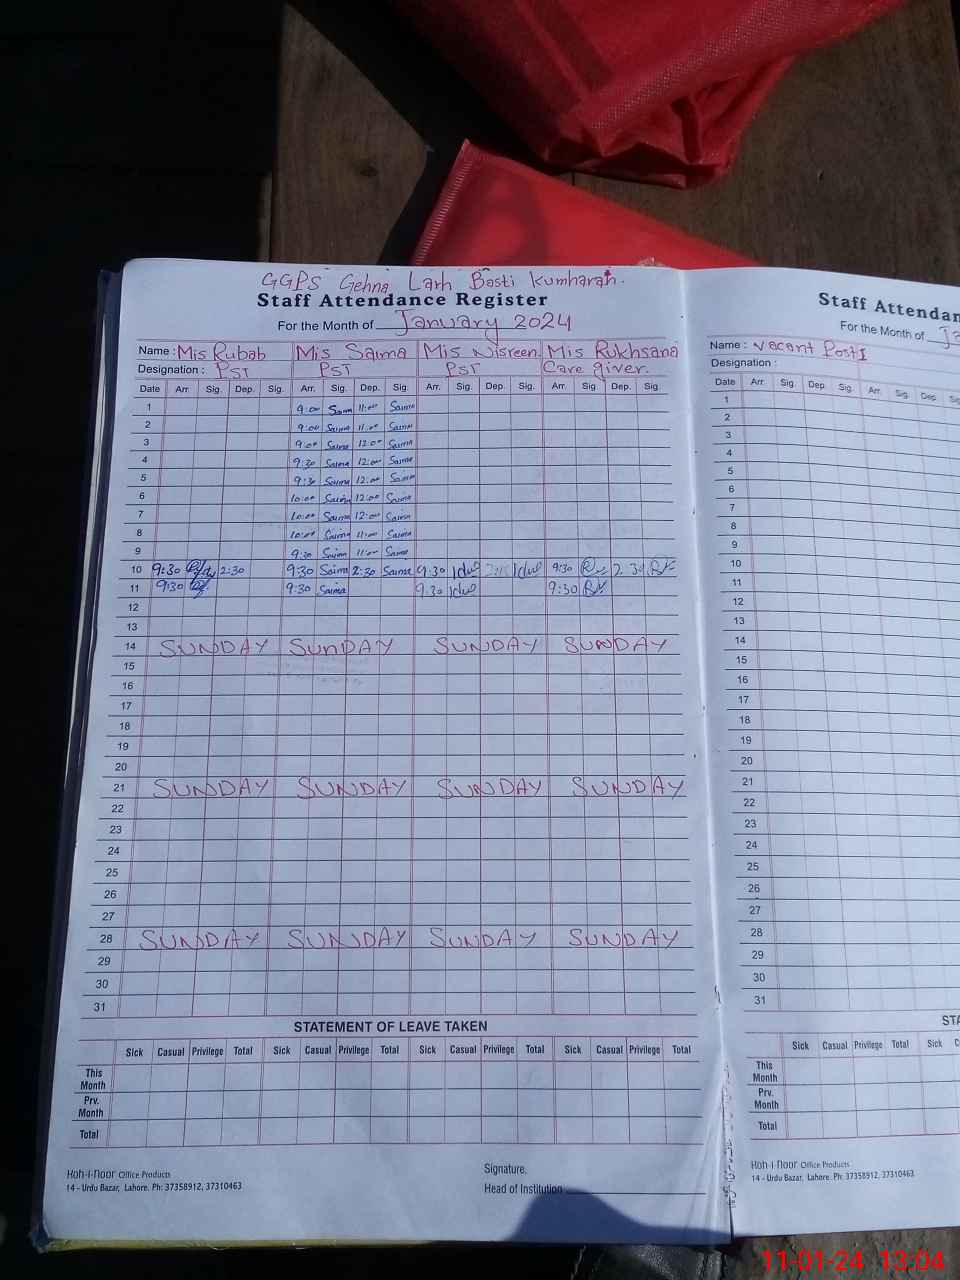 GGPS Gehna Larh Basti Kumharan.
Staff Attendance Register
For the Month of January 2024
Name : Mis Rubab Mis Saima Mis Nisreen. Mis Rukhsana
Designation : PST PST PST Care giver.
Date Arr. Sig. Dep. Sig. Arr. Sig. Dep. Sig. Arr. Sig. Dep. Sig. Arr. Sig. Dep. Sig.
1 9:00 Saima 11:00 Saima
2 9:00 Saima 11:00 Saima
3 9:00 Saima 12:00 Saima
4 9:30 Saima 12:00 Saima
5 9:30 Saima 12:00 Saima
6 10:00 Saima 12:00 Saima
7 10:00 Saima 12:00 Saima
8 10:00 Saima 11:00 Saima
9 9:30 Saima 11:00 Saima
10 9:30 2:30 9:30 Saima 2:30 Saima 9.30 9:30 2.30
11 9:30 9:30 Saima 9.30 9:30
12
13
14 SUNDAY SUNDAY SUNDAY SUNDAY
15
16
17
18
19
20
21 SUNDAY SUNDAY SUNDAY SUNDAY
22
23
24
25
26
27
28 SUNDAY SUNDAY SUNDAY SUNDAY
29
30
31
STATEMENT OF LEAVE TAKEN
Sick Casual Privilege Total Sick Casual Privilege Total Sick Casual Privilege Total Sick Casual Privilege Total
This Month
Prv. Month
Total
Signature.
Head of Institution
Koh-i-noor Office Products
14 - Urdu Bazar, Lahore. Ph: 37358912, 37310463
Staff Attendan
For the Month of Ja
Name : Vacant Post
Designation :
Date Arr. Sig. Dep. Sig. Arr. Sig. Dep.
1
2
3
4
5
6
7
8
9
10
11
12
13
14
15
16
17
18
19
20
21
22
23
24
25
26
27
28
29
30
31
STA
Sick Casual Privilege Total Sick C
This Month
Prv. Month
Total
Koh-i-noor Office Products
14 - Urdu Bazar, Lahore. Ph: 37358912, 37310463
11-01-24 13:04